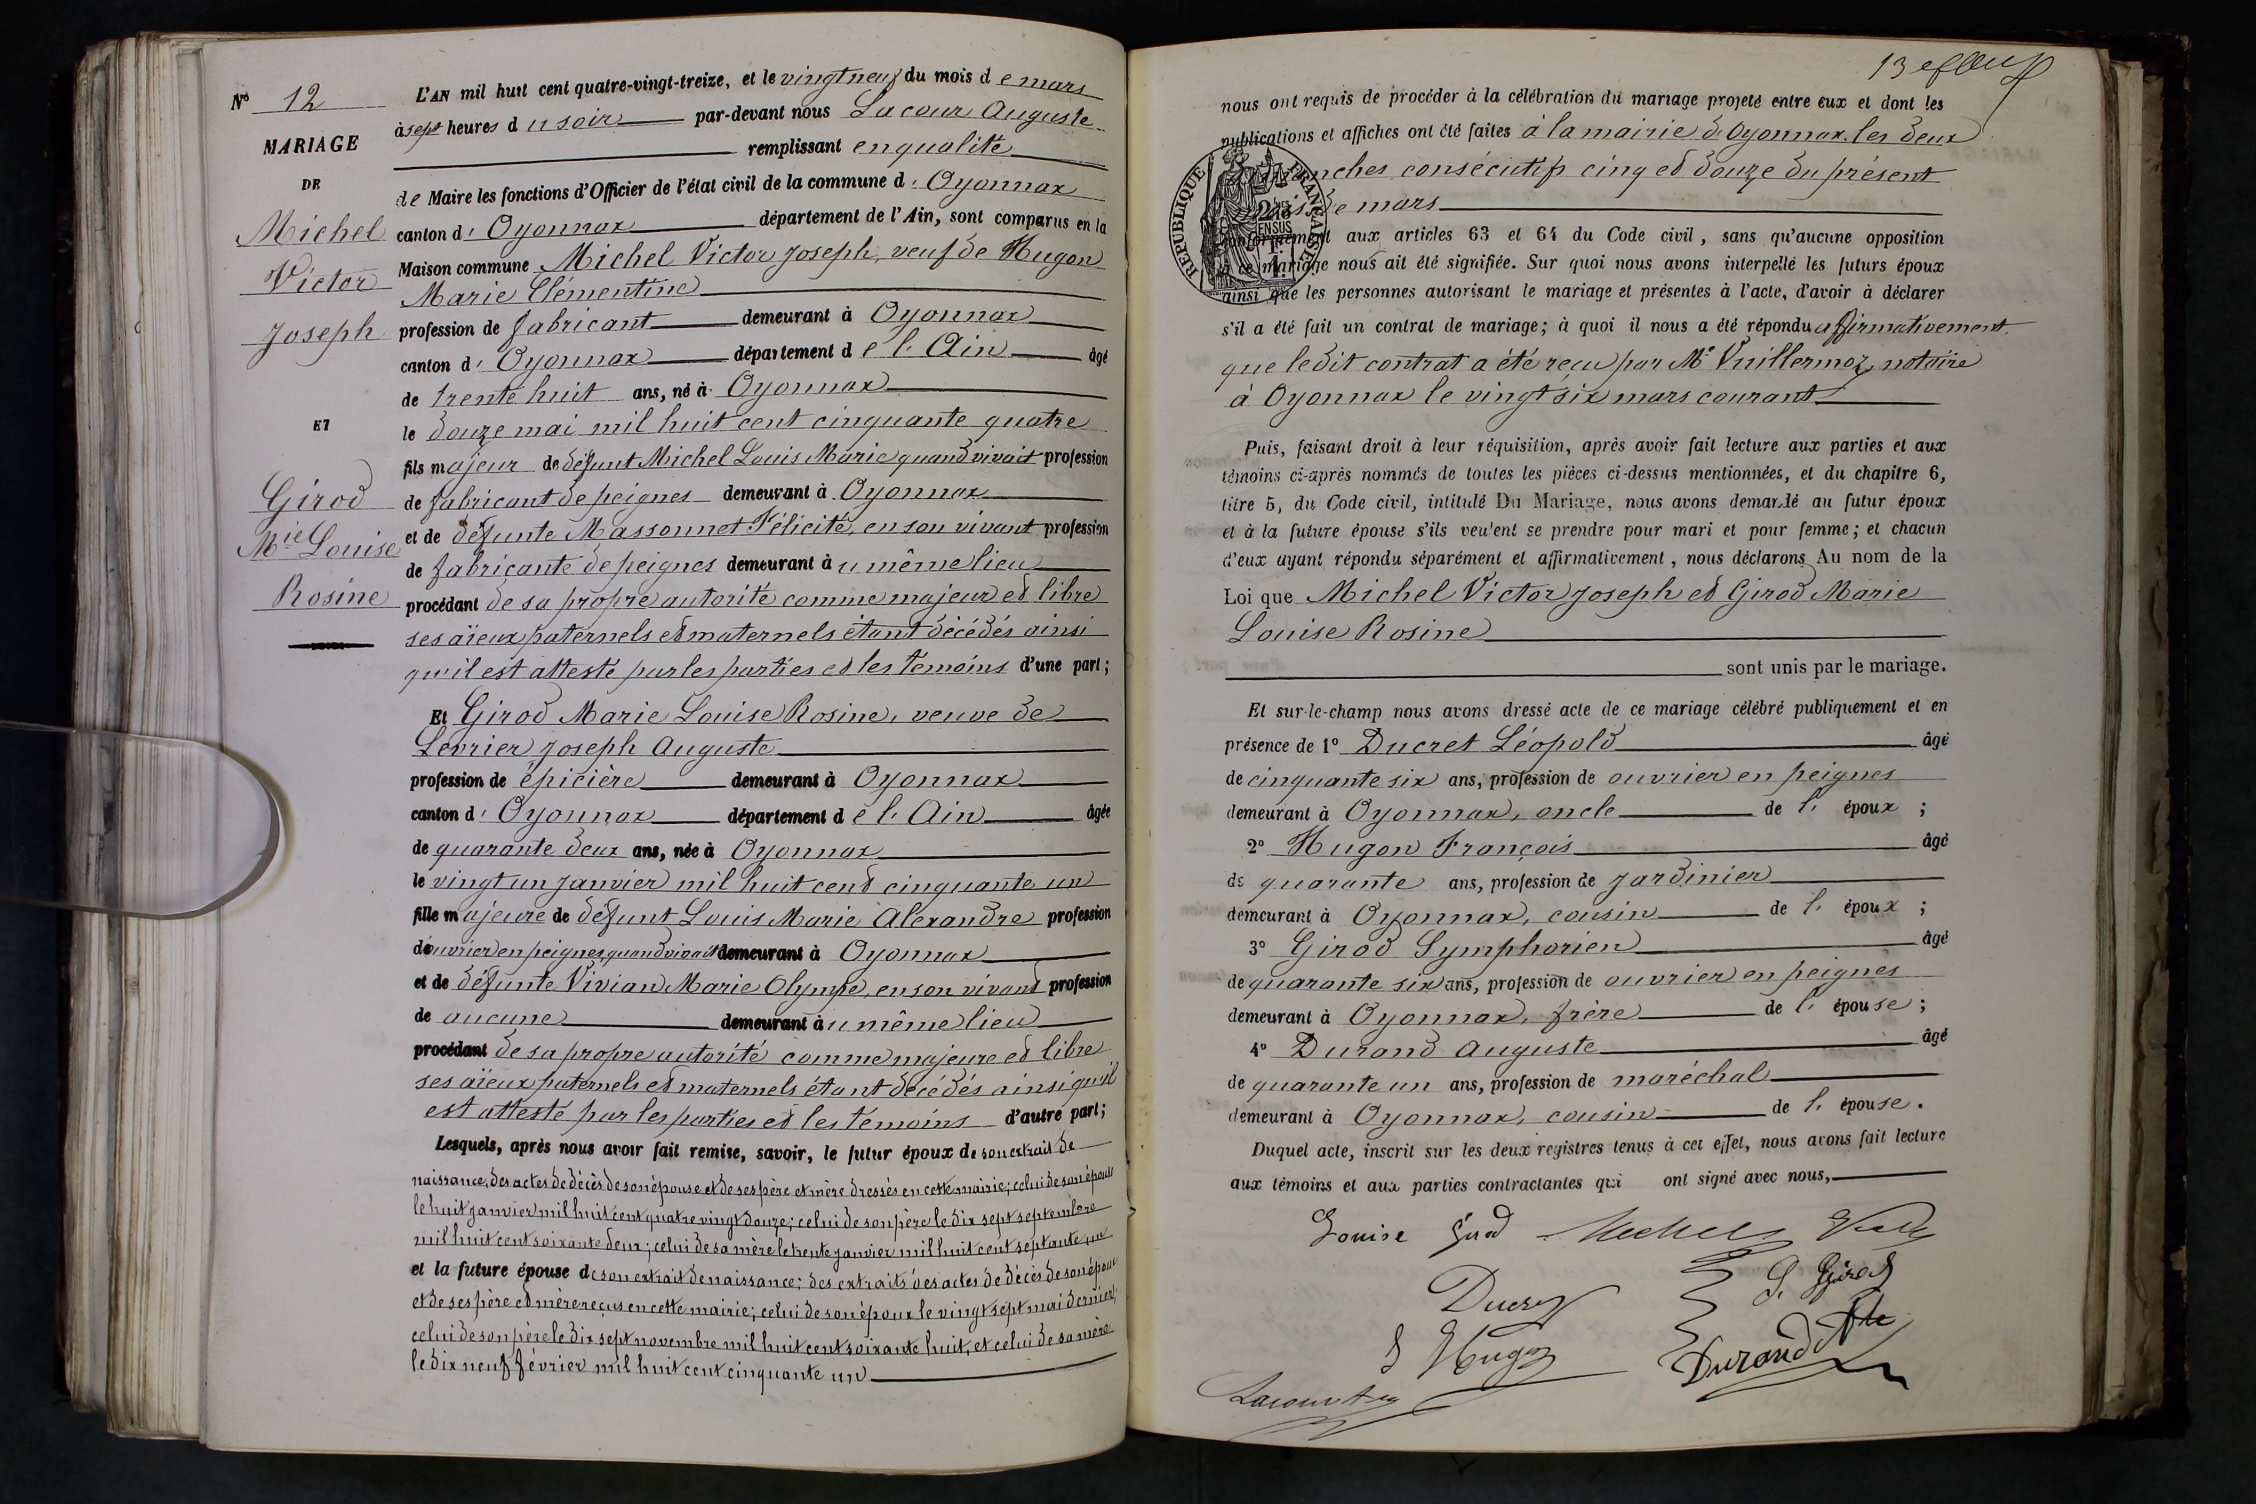 N° 12
MARIAGE
DE
Michel
Victor
Joseph
ET
Girod
Mie Louise
Rosine
L'AN mil huit cent quatre-vingt-treize, et le vingt neuf du mois de mars
à sept heures du soir par-devant nous Lacour Auguste
remplissant en qualité
de Maire les fonctions d'Officier de l'état civil de la commune d'Oyonnax
canton d'Oyonnax département de l'Ain, sont comparus en la
Maison commune Michel Victor Joseph, veuf de Hugon
Marie Clémentine
profession de fabricant demeurant à Oyonnax
canton d'Oyonnax département de l'Ain âgé
de trente huit ans, né à Oyonnax
le douze mai mil huit cent cinquante quatre
fils majeur de défunt Michel Louis Marie quand vivait profession
de fabricant de peignes demeurant à Oyonnax
et de défunte Massonnet Félicité, en son vivant profession
de fabricante de peignes demeurant à u même lieu
procédant de sa propre autorité comme majeur et libre
ses aïeux paternels et maternels étant décédés ainsi
qu'il est attesté par les parties et les témoins d'une part;
Et Girod Marie Louise Rosine, veuve de
Levrier Joseph Auguste
profession de épicière demeurant à Oyonnax
canton d'Oyonnax département de l'Ain âgée
de quarante deux ans, née à Oyonnax
le vingt un janvier mil huit cent cinquante un
fille majeure de défunt Louis Marie Alexandre profession
d'ouvrier en peignes quand vivait demeurant à Oyonnax
et de défunte Vivian Marie Olympe, en son vivant profession
de aucune demeurant à u même lieu
procédant de sa propre autorité comme majeure et libre
ses aïeux paternels et maternels étant décédés ainsi qu'il
est attesté par les parties et les témoins d'autre part;
Lesquels, après nous avoir fait remise, savoir, le futur époux de son extrait de
naissance, des actes de décès de son épouse et de ses père et mère dressés en cette mairie; celui de son épouse
le huit janvier mil huit cent quatre vingt douze; celui de son père le dix sept septembre
mil huit cent soixante deux; celui de sa mère le trente janvier mil huit cent septante un
et la future épouse de son extrait de naissance; des extraits des actes de décès de son époux
et de ses père et mère reçus en cette mairie; celui de son époux le vingt sept mai dernier;
celui de son père le dix sept novembre mil huit cent soixante huit, et celui de sa mère
le dix neuf février mil huit cent cinquante un
13
nous ont requis de procéder à la célébration du mariage projeté entre eux et dont les
publications et affiches ont été faites à la mairie d'Oyonnax les deux
dimanches consécutifs cinq et douze du présent
mois de mars
conformément aux articles 63 et 64 du Code civil, sans qu'aucune opposition
à ce mariage nous ait été signifiée. Sur quoi nous avons interpellé les futurs époux
ainsi que les personnes autorisant le mariage et présentes à l'acte, d'avoir à déclarer
s'il a été fait un contrat de mariage; à quoi il nous a été répondu affirmativement
que le dit contrat a été reçu par Me Vuillermoz, notaire
à Oyonnax le vingt six mars courant
RÉPUBLIQUE FRANÇAISE
Puis, faisant droit à leur réquisition, après avoir fait lecture aux parties et aux
témoins ci-après nommés de toutes les pièces ci-dessus mentionnées, et du chapitre 6,
titre 5, du Code civil, intitulé Du Mariage, nous avons demandé au futur époux
et à la future épouse s'ils veulent se prendre pour mari et pour femme; et chacun
d'eux ayant répondu séparément et affirmativement, nous déclarons Au nom de la
Loi que Michel Victor Joseph et Girod Marie
Louise Rosine
sont unis par le mariage.
Et sur-le-champ nous avons dressé acte de ce mariage célébré publiquement et en
présence de 1° Ducret Léopold âgé
de cinquante six ans, profession de ouvrier en peignes
demeurant à Oyonnax, oncle de l'époux;
2° Hugon François âgé
de quarante ans, profession de jardinier
demeurant à Oyonnax, cousin de l'époux;
3° Girod Symphorien âgé
de quarante six ans, profession de ouvrier en peignes
demeurant à Oyonnax, frère de l'épouse;
4° Durand Auguste âgé
de quarante un ans, profession de maréchal
demeurant à Oyonnax, cousin de l'épouse.
Duquel acte, inscrit sur les deux registres tenus à cet effet, nous avons fait lecture
aux témoins et aux parties contractantes qui ont signé avec nous,
Louise Girod Michel
Ducret S. Girod
Hugon Durand
Lacour